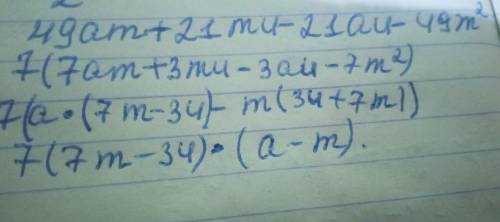 2
49am+21mu-21au-49m²
7(7am+3mu-3au-7m²)
7(a•(7m-3u)-m(3u+7m))
7(7m-3u)•(a-m).